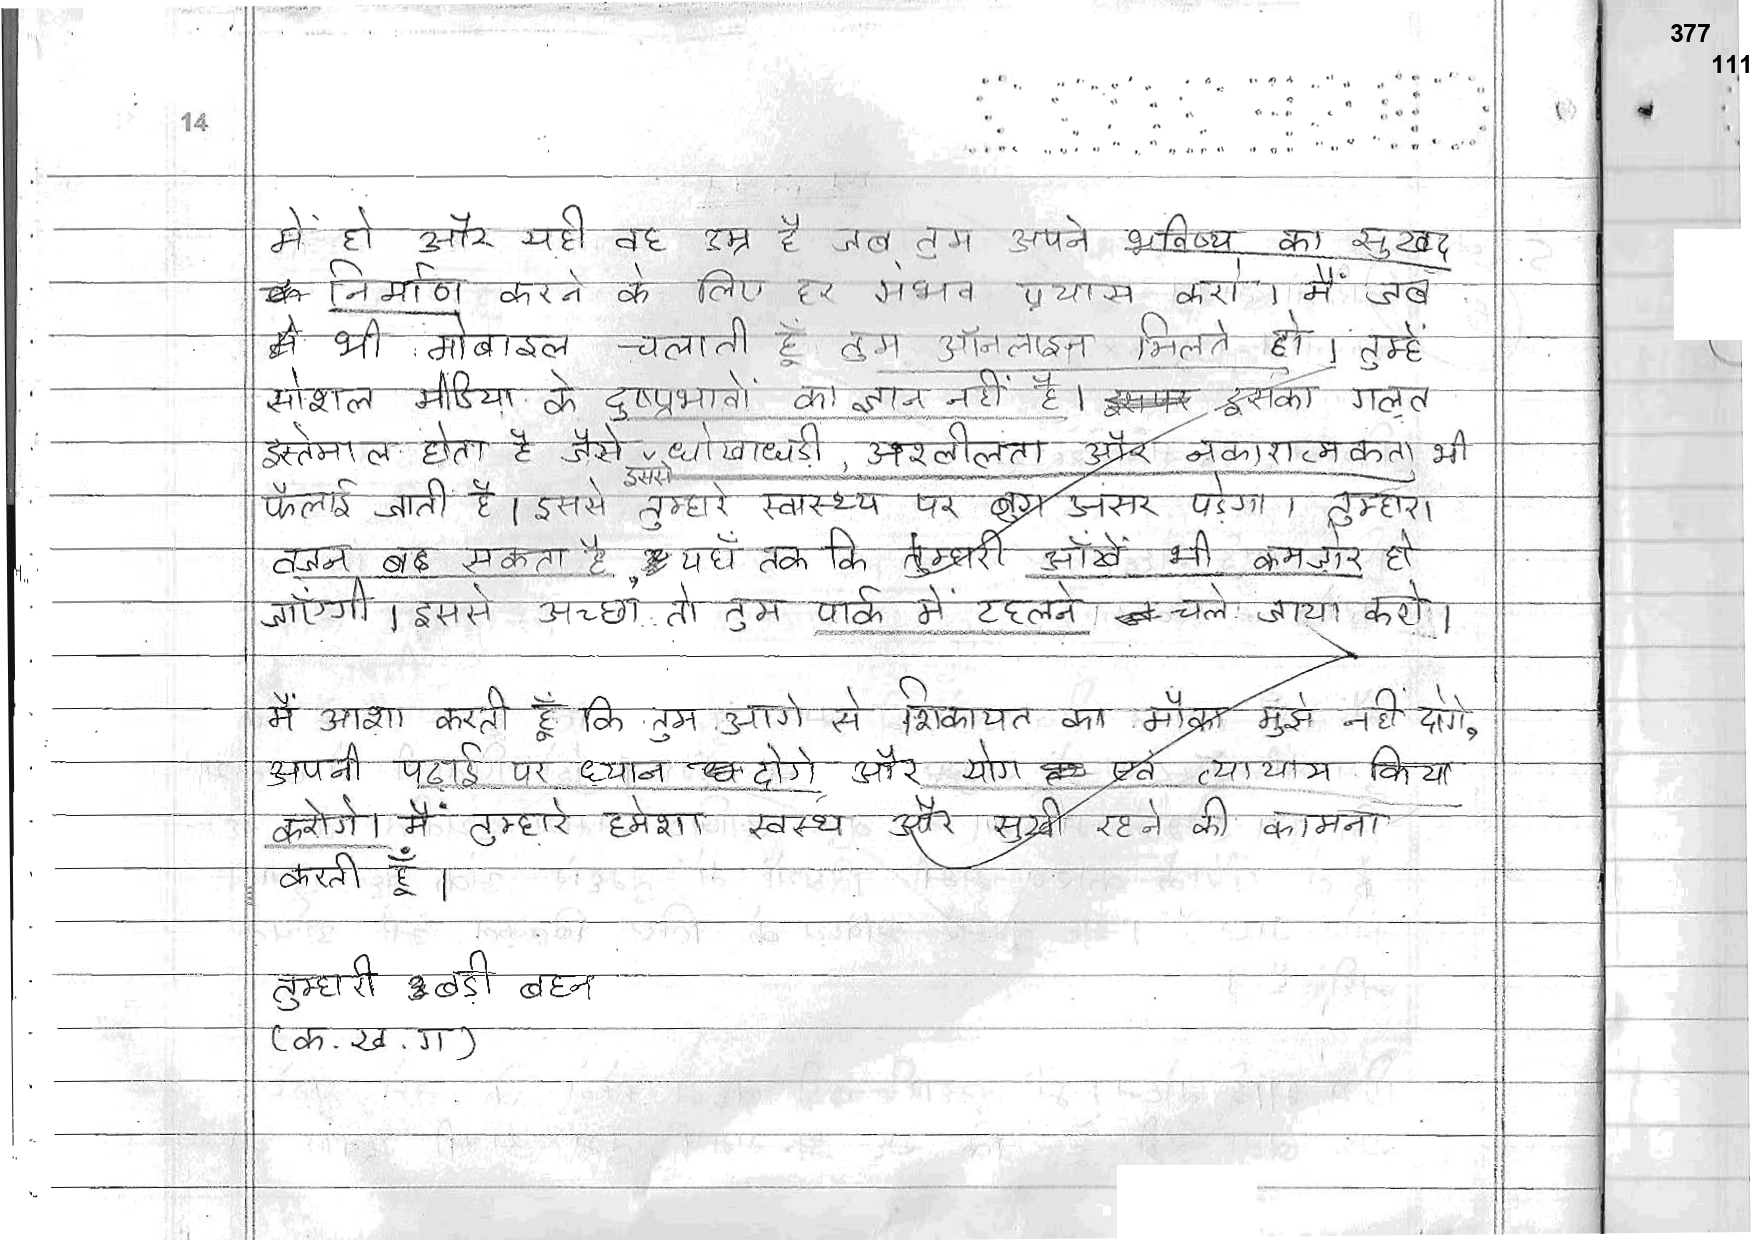 377
111
14
में हो और यही वह उम्र है जब तुम अपने भविष्य का सुखद
निर्माण करने के लिए हर संभव प्रयास करो। मैं जब
भी मोबाइल चलाती हूँ तुम ऑनलाइन मिलते हो। तुम्हें
सोशल मीडिया के दुष्प्रभावों का ज्ञान नहीं है। इसका गलत
इस्तेमाल होता है जैसे धोखाधड़ी, अश्लीलता और नकारात्मकता भी
इससे
फैलाई जाती है। इससे तुम्हारे स्वास्थ्य पर बुरा असर पड़ेगा। तुम्हारा
वज़न बढ़ सकता है, यहाँ तक कि तुम्हारी आँखें भी कमज़ोर हो
जाएँगी। इससे अच्छा तो तुम पार्क में टहलने चले जाया करो।
मैं आशा करती हूँ कि तुम आगे से शिकायत का मौका मुझे नहीं दोगे,
अपनी पढ़ाई पर ध्यान दोगे और योग एवं व्यायाम किया
करोगे। मैं तुम्हारे हमेशा स्वस्थ और सुखी रहने की कामना
करती हूँ।
तुम्हारी बड़ी बहन
(क. ख. ग)